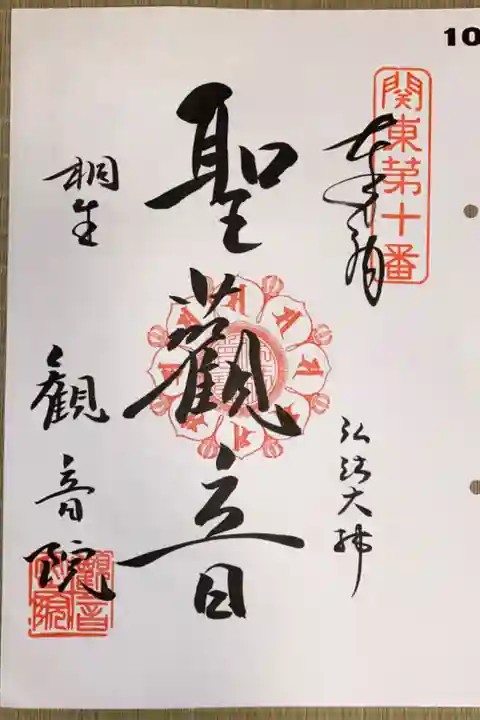 10
関東第十番
奉拝
弘法大師
聖観音
桐生
観音院
觀音院